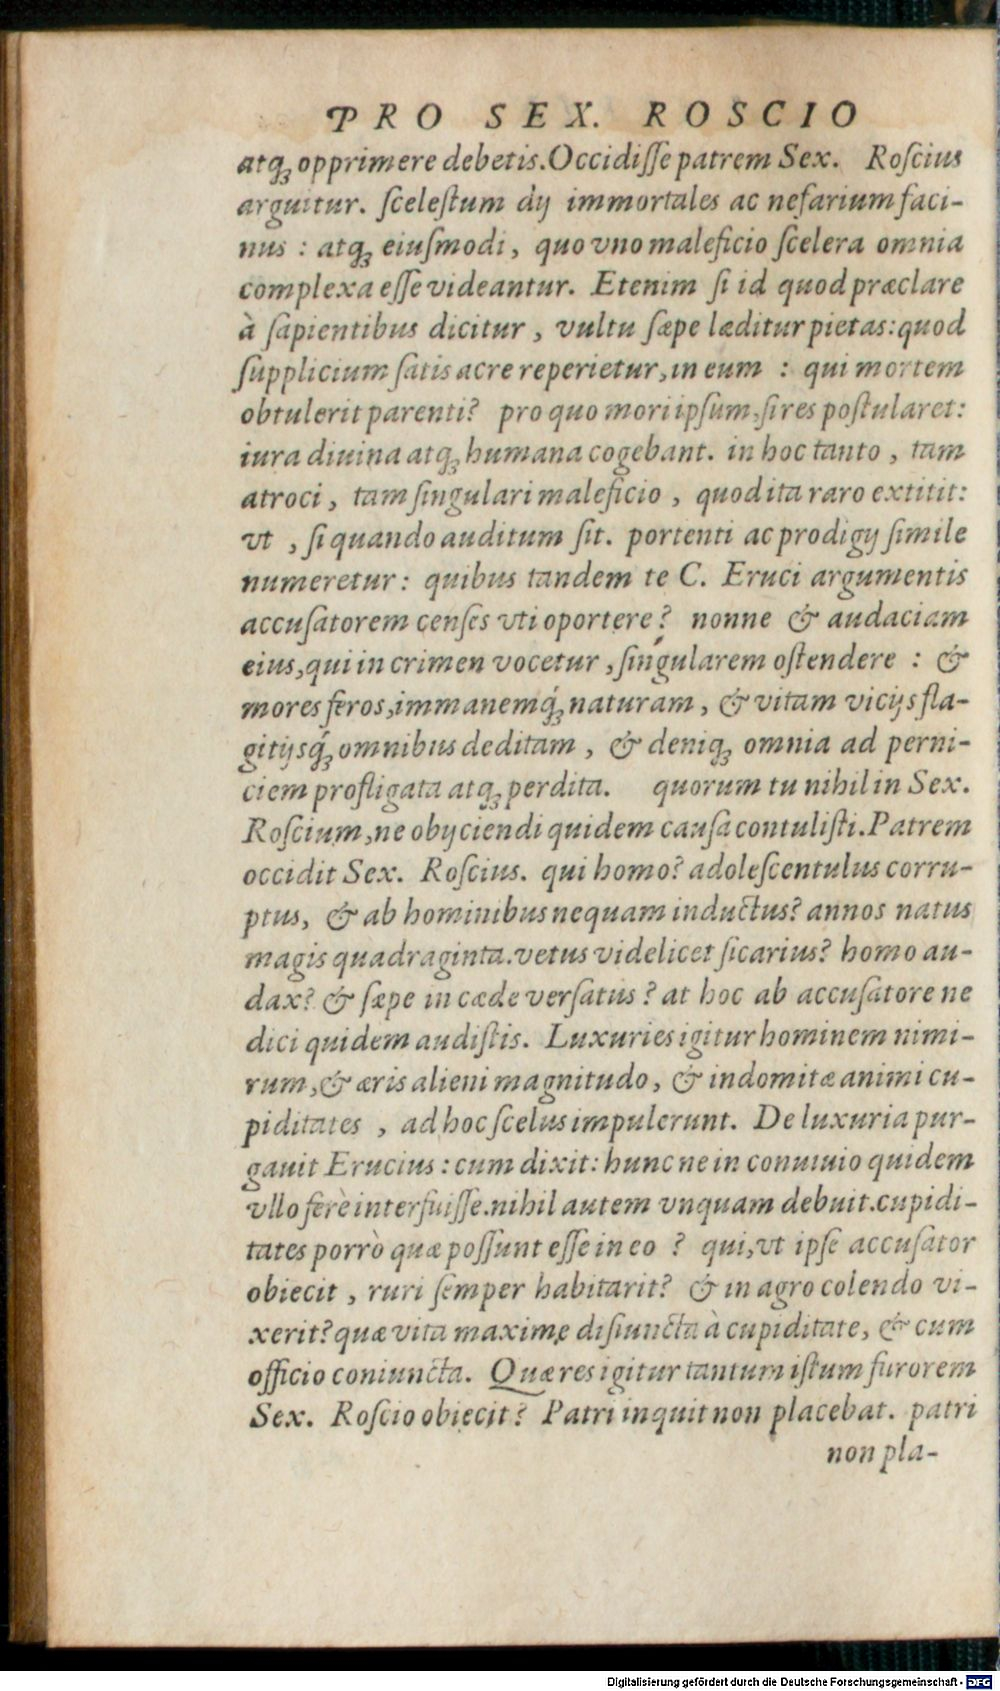 PRO SEX. ROSCIO
atq; opprimere debetis. Occidiſſe patrem Sex. Roſcius
arguitur. ſceleſtum dij immortales ac nefarium faci-
nus : atq; eiuſmodi, quo vno maleficio ſcelera omnia
complexa eſſe videantur. Etenim ſi id quod præclare
à ſapientibus dicitur, vultu ſæpe læditur pietas: quod
ſupplicium ſatis acre reperietur, in eum : qui mortem
obtulerit parenti? pro quo mori ipſum, ſi res poſtularet:
iura diuina atq; humana cogebant. in hoc tanto, tam
atroci, tam ſingulari maleficio, quod ita raro extitit:
vt, ſi quando auditum ſit. portenti ac prodigij ſimile
numeretur: quibus tandem te C. Eruci argumentis
accuſatorem cenſes vti oportere? nonne & audaciam
eius, qui in crimen vocetur, ſingularem oſtendere : &
mores feros, immanemq́; naturam, & vitam vicijs fla-
gitijsq́; omnibus deditam, & deniq; omnia ad perni-
ciem profligata atq; perdita. quorum tu nihil in Sex.
Roſcium, ne obijciendi quidem cauſa contuliſti. Patrem
occidit Sex. Roſcius. qui homo? adoleſcentulus corru-
ptus, & ab hominibus nequam inductus? annos natus
magis quadraginta. vetus videlicet ſicarius? homo au-
dax? & ſæpe in cæde verſatus? at hoc ab accuſatore ne
dici quidem audiſtis. Luxuries igitur hominem nimi-
rum, & æris alieni magnitudo, & indomitæ animi cu-
piditates, ad hoc ſcelus impulerunt. De luxuria pur-
gauit Erucius: cum dixit: hunc ne in conuiuio quidem
vllo ferè interfuiſſe. nihil autem vnquam debuit. cupidi-
tates porrò quæ poſſunt eſſe in eo? qui, vt ipſe accuſator
obiecit, ruri ſemper habitarit? & in agro colendo vi-
xerit? quæ vita maxime diſiuncta à cupiditate, & cum
officio coniuncta. Quæ res igitur tantum iſtum furorem
Sex. Roſcio obiecit? Patri inquit non placebat. patri
non pla-
Digitalisierung gefördert durch die Deutsche Forschungsgemeinschaft - DFG